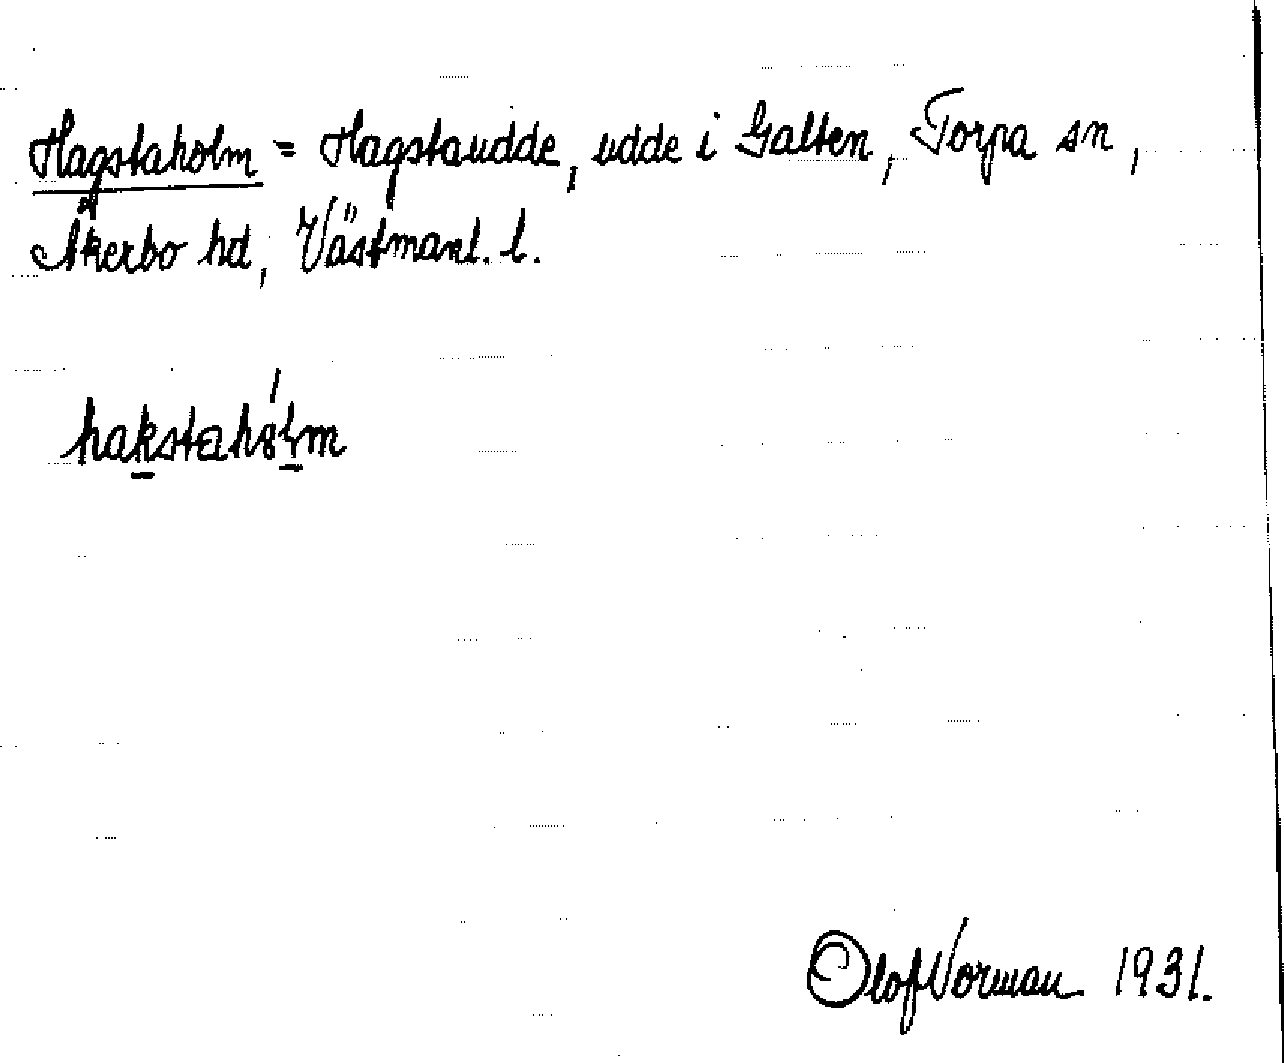 Hagstaholm = Hagstaudde, udde i Galten, Torpa sn,
Åkerbo hd, Västmanl. l.
hakstahólm
Olof Norman 1931.